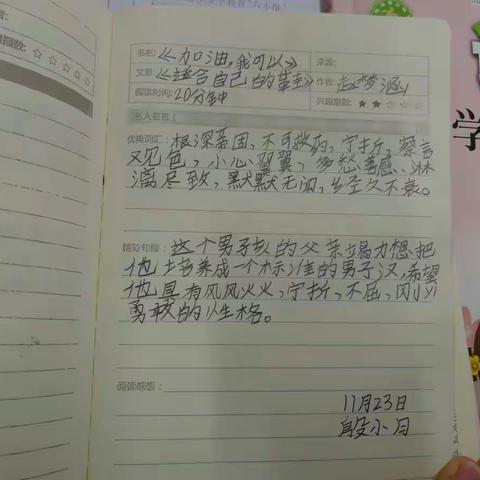 书名:《加油,我可以》 来源:
文章:《适合自己的草》 作者:赵梦涵
阅读时间:20分钟 兴趣指数:★★☆☆☆
名人名言:
优美词汇:根深蒂固,不可救药,宁折,察言
观色,小心翼翼,多愁善感、淋
漓尽致,默默无闻,生至久不衰。
精彩句段:这个男子汉的父亲竭力想把
他培养成一个标准的男子汉,希望
他具有风风火火,宁折,不屈,刚
勇敢的人生格。
阅读感想:
11月23日
殷小月
学